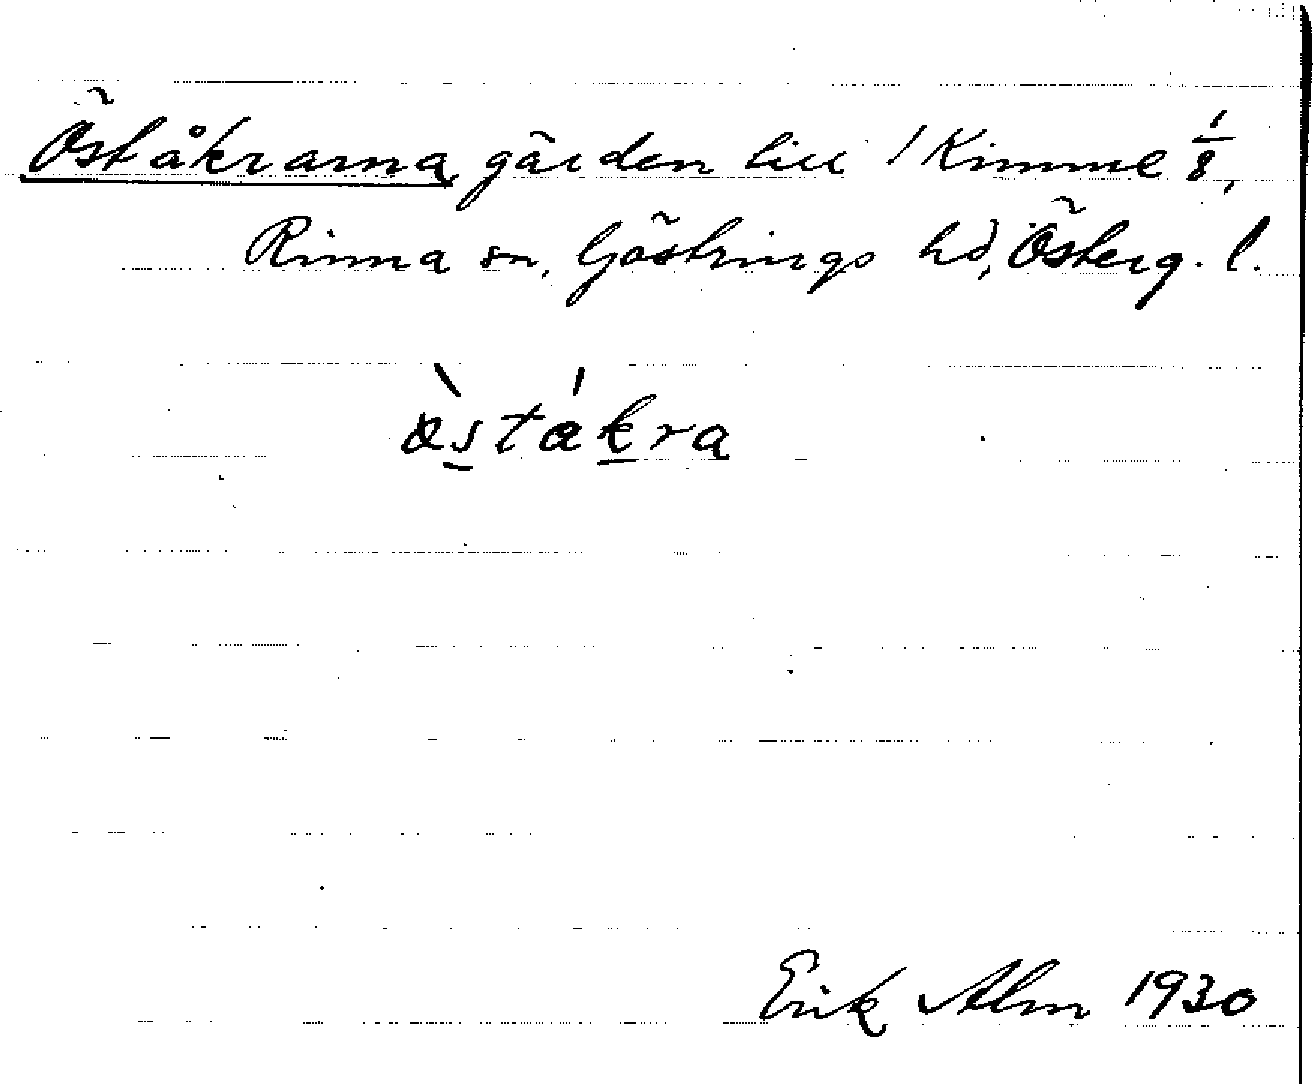 Öståkrarna gärden till /Kimme 1/8,
Rinna sn, Göstrings hd, Österg. l.
ö̀stákra
Erik Alm 1930